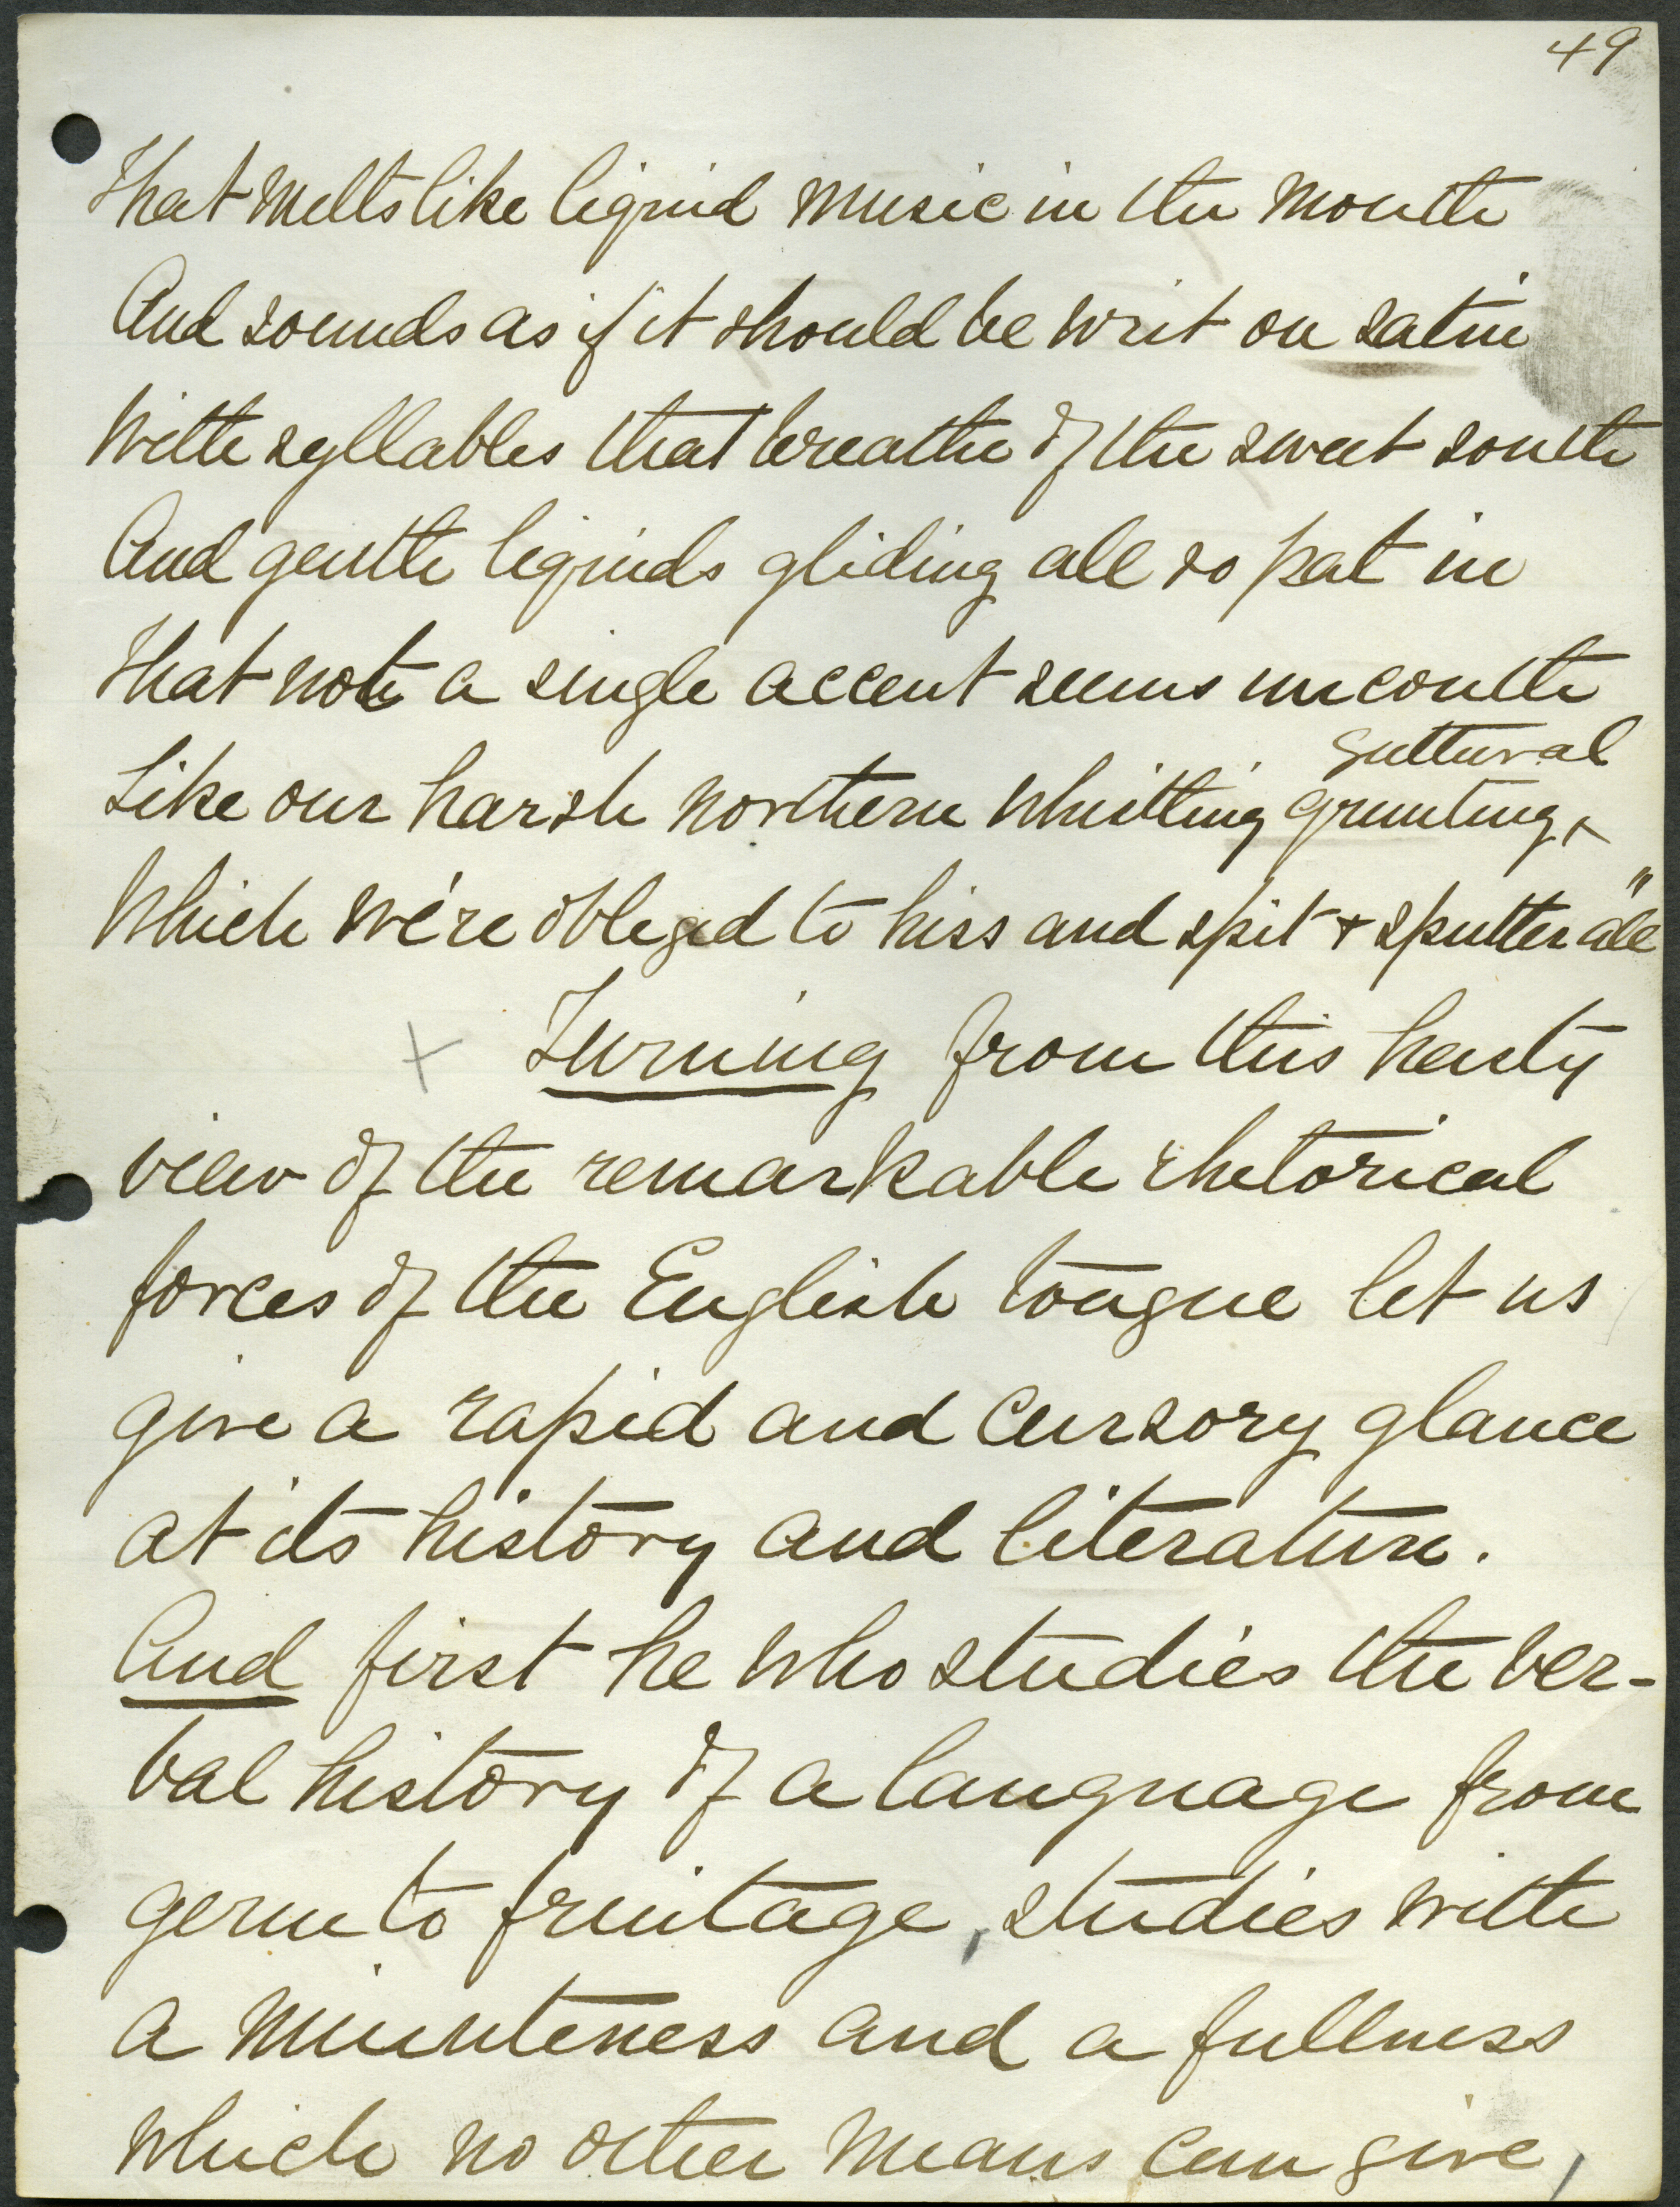 49
That melts like liquid music in the mouth
And sounds as if it should be writ on satin
With syllables that breathe of the sweet south
And gentle liquids gliding all so pat in
That not a single accent seems uncouth
guttural
Like our harsh northern whistling grunting ^
Which we're obliged to hiss and spit & sputter all"
+ Turning from this hasty
view of the remarkable rhetorical
forces of the English tongue let us
give a rapid and cursory glance
at its history and literature.
And first he who studies the ver-
bal history of a language from
germ to fruitage, studies with
a minuteness and a fullness
which no other means can give,